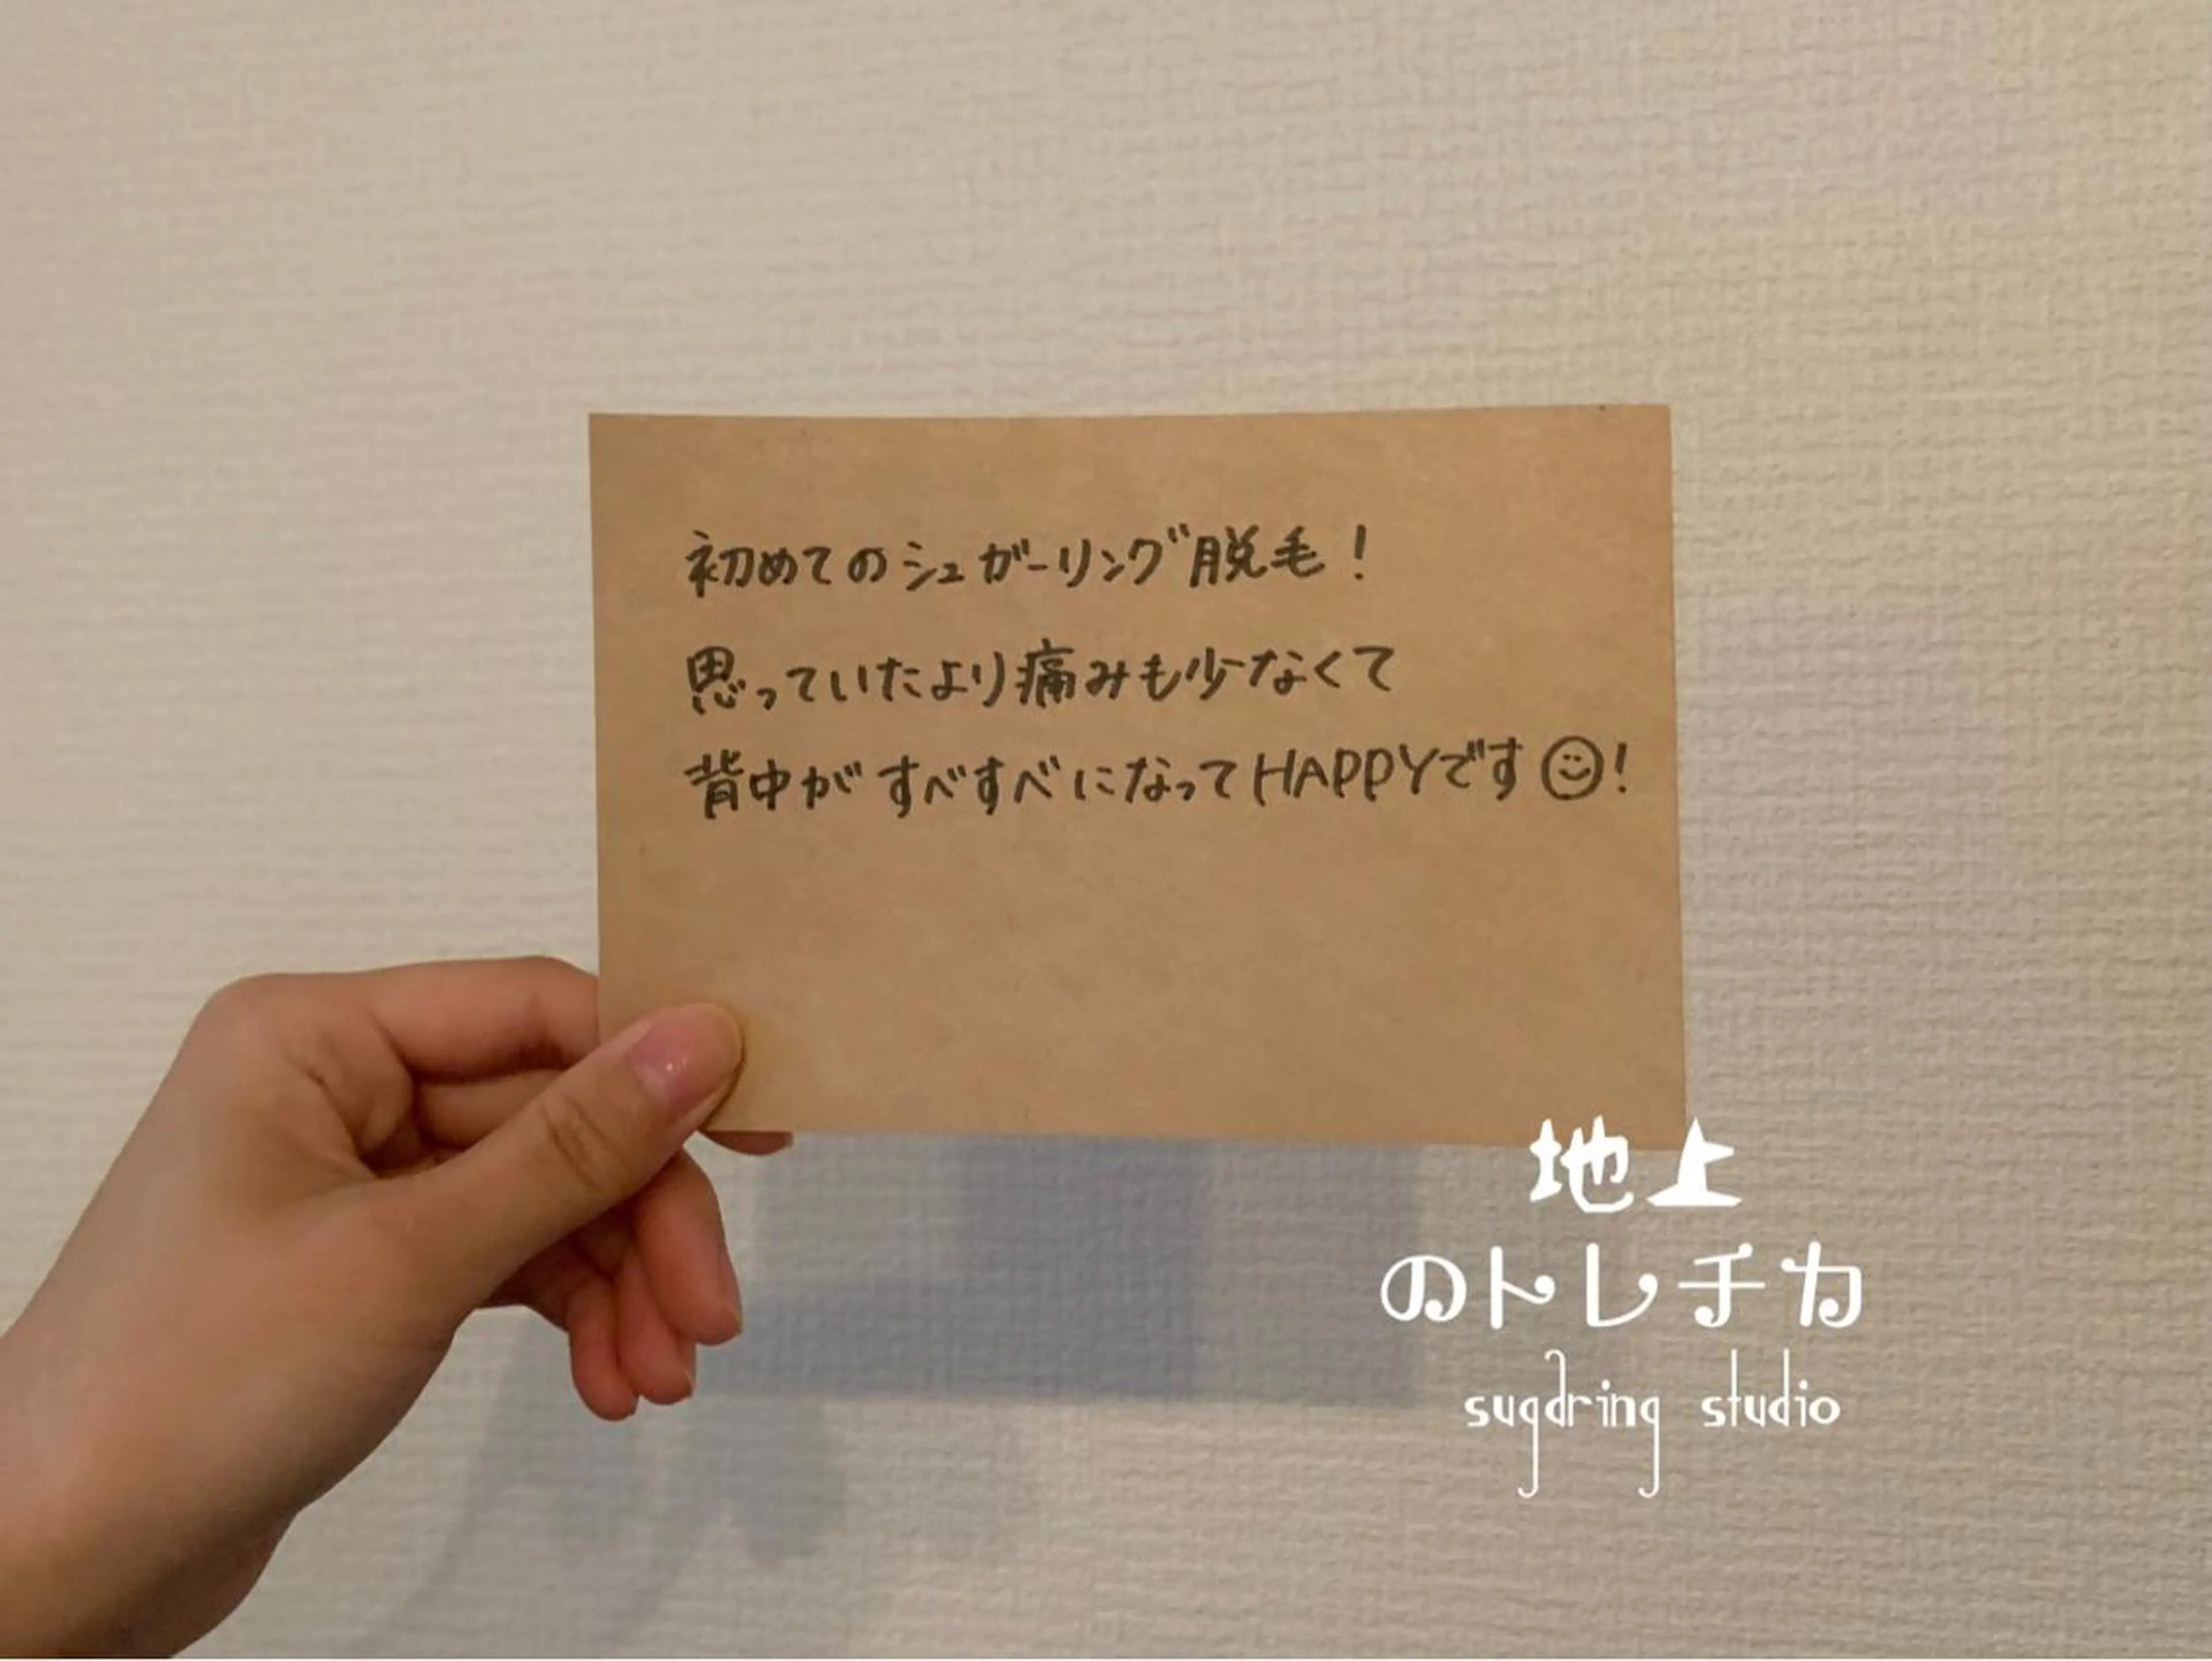 初めてのシュガーリング脱毛！
思っていたより痛みも少なくて
背中がすべすべになってHAPPYです☺！
地上
のトレチカ
sugaring studio